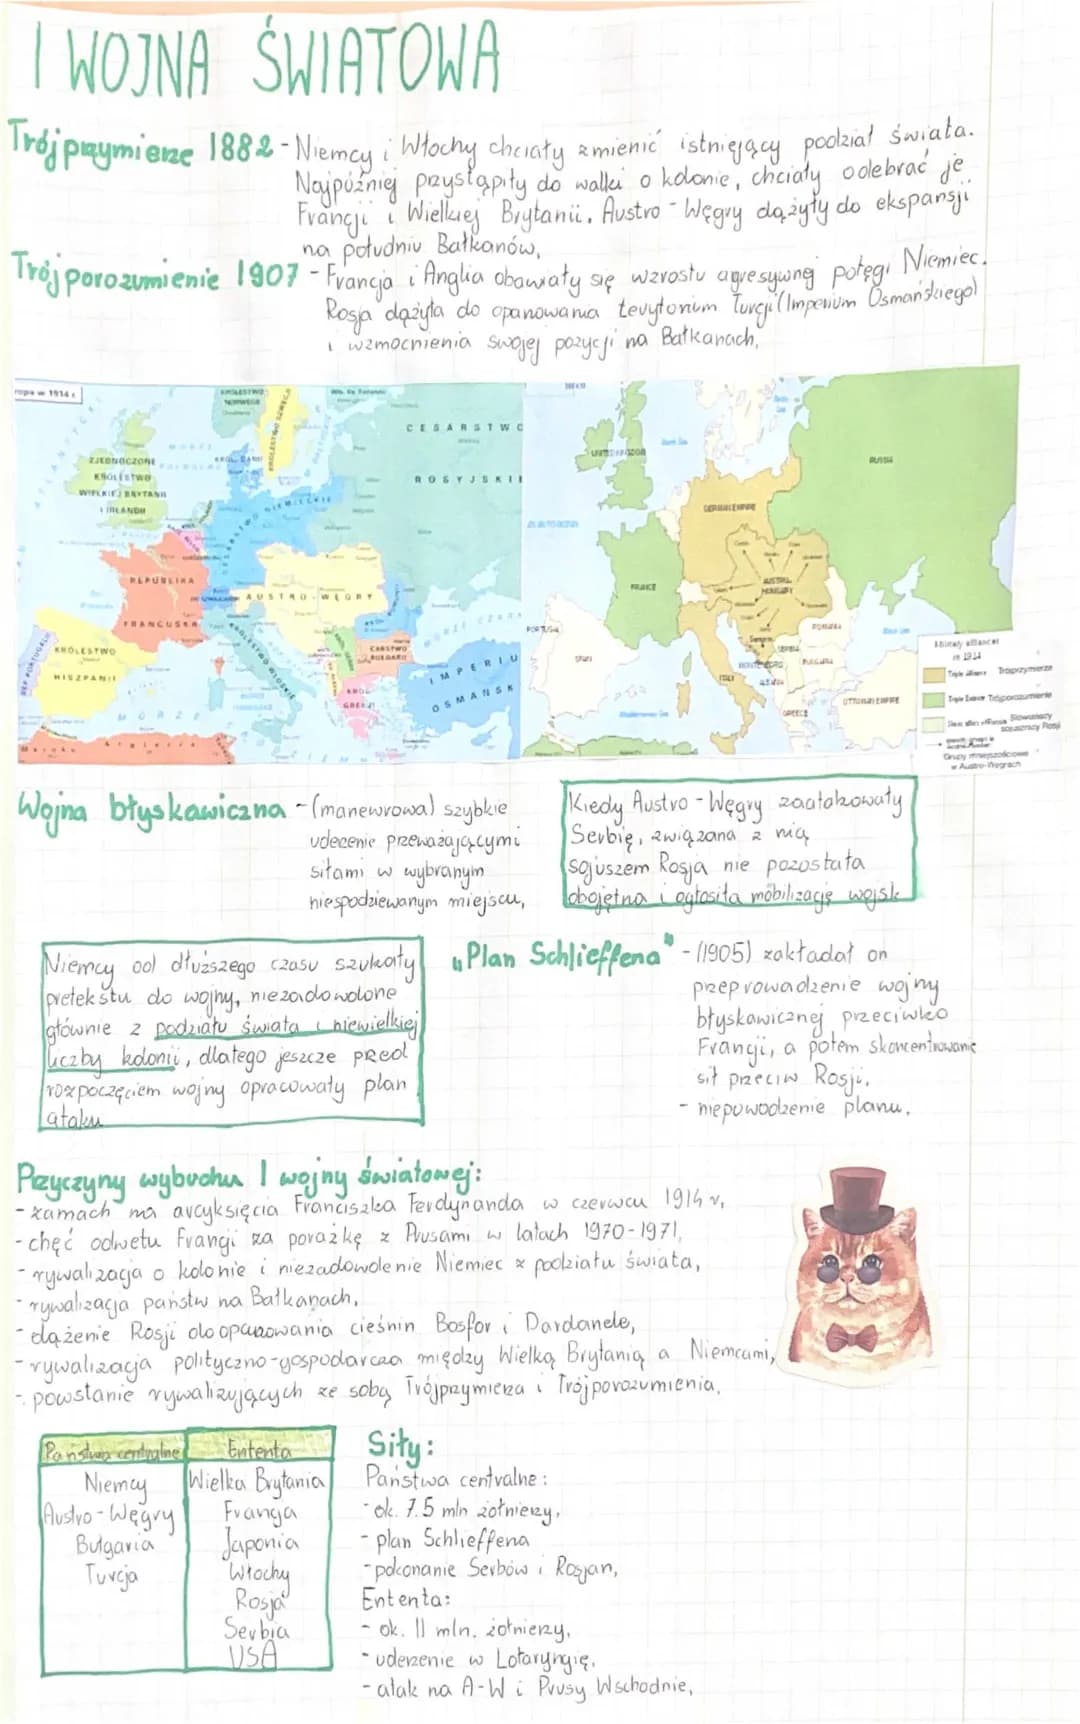 I WOJNA ŚWIATOWA
Trójprzymierze 1882 - Niemcy i Włochy chciały zmienić istniejący podział świata.
Najpóźniej przystąpiły do walki o kolonie, chciały odebrać je
Francji i Wielkiej Brytanii. Austro-Węgry dążyły do ekspansji
na południu Bałkanów,
Trójporozumienie 1907 - Francja i Anglia obawiały się wzrostu agresywnej potęgi Niemiec.
Rosja dążyła do opanowania terytorium Turcji (Imperium Osmańskiego)
i wzmocnienia swojej pozycji na Bałkanach,
ropa w 1914 r.
KRÓLESTWO
NORWEGII
KRÓLESTWO SZWECJI
CESARSTWO
ROSYJSKIE
ZJEDNOCZONE
KRÓLESTWO
WIELKIEJ BRYTANII
I IRLANDII
KRÓL. DANII
CESARSTWO NIEMIECKIE
REPUBLIKA
FRANCUSKA
AUSTRO-WĘGRY
KRÓLESTWO WŁOSKIE
REP. PORTUGALII
KRÓLESTWO
HISZPANII
CARSTWO
BUŁGARII
KRÓL.
GRECJI
IMPERIU
OSMAŃSK
MORZE
Maroko
Algieria
UNITED KINGDOM
North Sea
RUSSIA
GERMAN EMPIRE
FRANCE
AUSTRIA-HUNGARY
PORTUGAL
SPAIN
ITALY
SERBIA
MONTENEGRO
ROMANIA
BULGARIA
ALBANIA
GREECE
OTTOMAN EMPIRE
Black Sea
Mediterranean Sea
Military alliances
in 1914
Triple Alliance Trójprzymierze
Triple Entente Trójporozumienie
Słowiańscy
sojusznicy Rosji
Grupy mniejszościowe
w Austro-Węgrach
Wojna błyskawiczna - (manewrowa) szybkie
uderzenie przeważającymi
siłami w wybranym
niespodziewanym miejscu,
Kiedy Austro-Węgry zaatakowały
Serbię, związana z nią
sojuszem Rosja nie pozostała
obojętna i ogłosiła mobilizację wojsk
Niemcy od dłuższego czasu szukały
pretekstu do wojny, niezadowolone
głównie z podziału świata i niewielkiej
liczby kolonii, dlatego jeszcze przed
rozpoczęciem wojny opracowały plan
ataku
„Plan Schlieffena" - (1905) zakładał on
przeprowadzenie wojny
błyskawicznej przeciwko
Francji, a potem skoncentrowanie
sił przeciw Rosji.
- niepowodzenie planu.
Przyczyny wybuchu I wojny światowej:
- zamach na arcyksięcia Franciszka Ferdynanda w czerwcu 1914 r,
- chęć odwetu Francji za porażkę z Prusami w latach 1970-1971,
- rywalizacja o kolonie i niezadowolenie Niemiec z podziału świata,
- rywalizacja państw na Bałkanach,
- dążenie Rosji do opanowania cieśnin Bosfor i Dardanele,
- rywalizacja polityczno-gospodarcza między Wielką Brytanią a Niemcami,
- powstanie rywalizujących ze sobą Trójprzymierza i Trójporozumienia,
Państwa centralne
Niemcy
Austro-Węgry
Bułgaria
Turcja
Ententa
Wielka Brytania
Francja
Japonia
Włochy
Rosja
Serbia
USA
Siły:
Państwa centralne:
- ok. 7.5 mln żołnierzy,
- plan Schlieffena
- pokonanie Serbów i Rosjan,
Ententa:
- ok. 11 mln. żołnierzy,
- uderzenie w Lotaryngię,
- atak na A-W i Prusy Wschodnie,